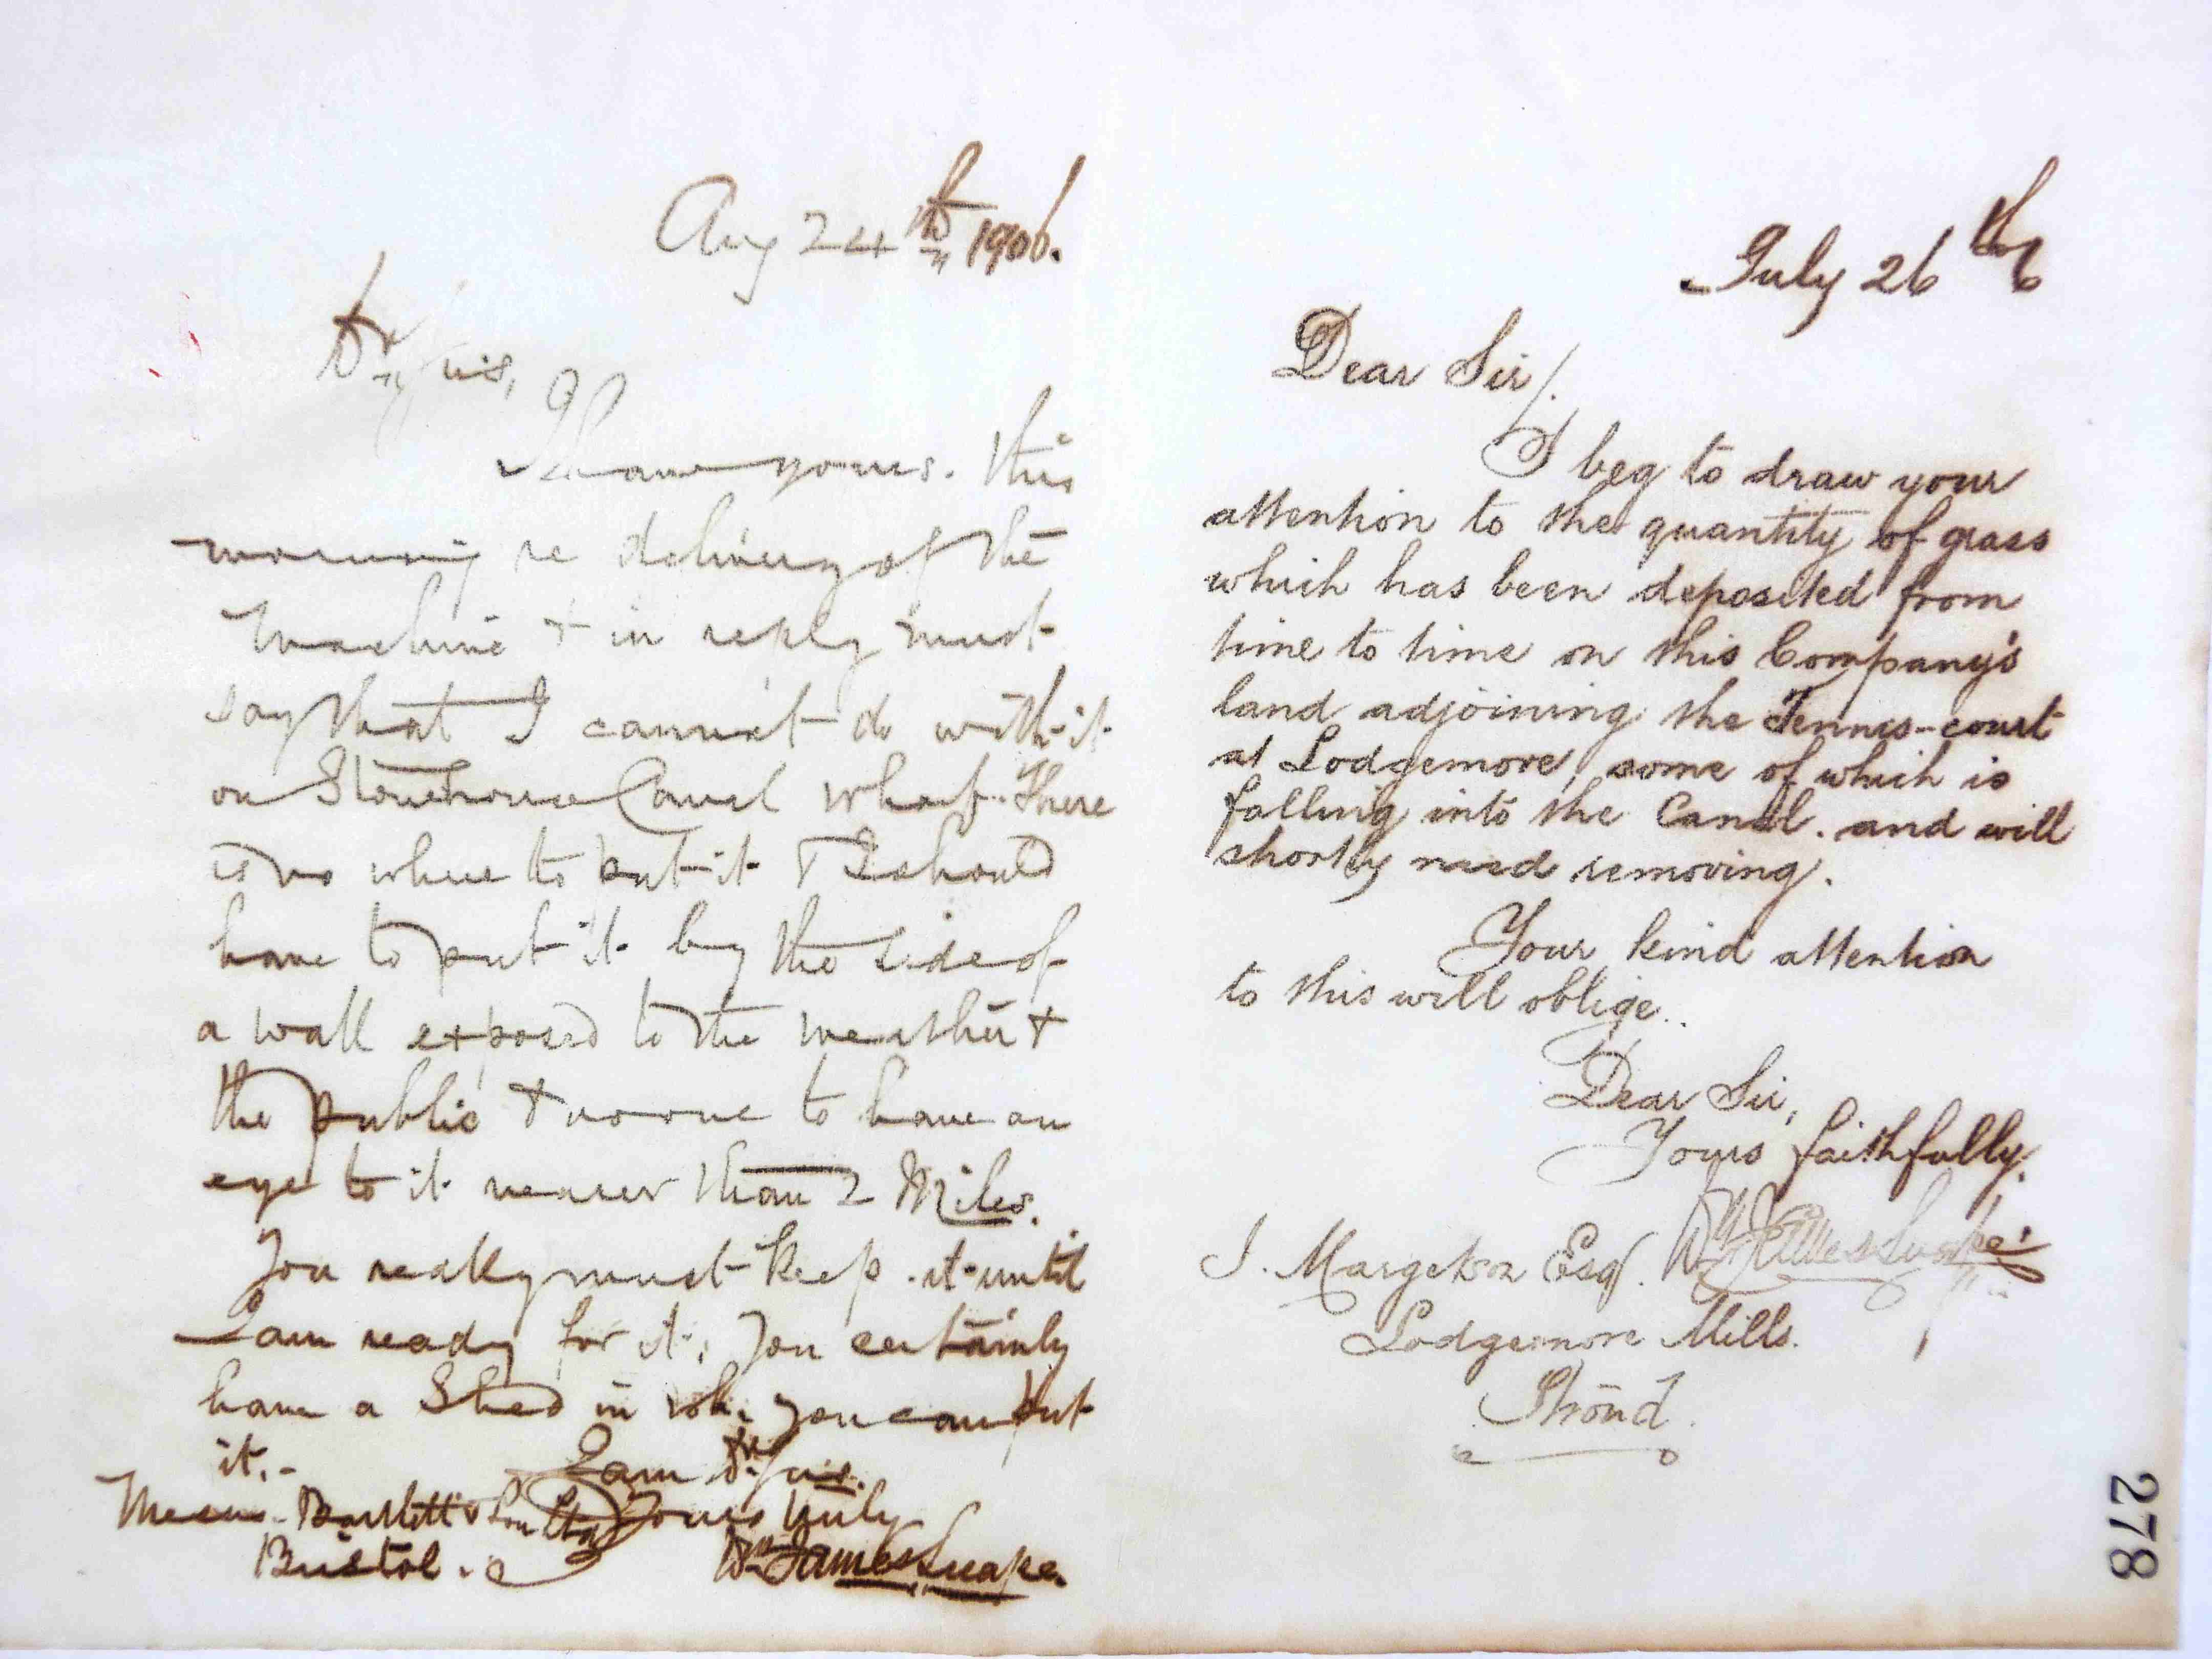 Aug 24th 1906.
Dr Sirs,
I have yours. this
morning re delivery of the
Machine & in reply must
say that I cannot do with it
on Stonehouse Canal wharf. There
is no where to put it & I should
have to put it by the side of
a wall exposed to the weather &
the public & no one to have an
eye to it nearer than 2 Miles.
You really must keep it until
I am ready for it. You certainly
have a Shed in wh. you can put
it.-
I am Dr Sirs.
Yours truly
Messrs. Bartlett & Son Ltd
Bristol.
Wm James Snape.
July 26th 6
Dear Sir/.
I beg to draw your
attention to the quantity of grass
which has been deposited from
time to time on this Company's
land adjoining the Tennis-court
at Lodgemore, some of which is
falling into the Canal. and will
shortly need removing.
Your kind attention
to this will oblige..
Dear Sir,
Yours faithfully.
Wm James Snape.
J. Margetson Esq.
Lodgemore Mills.
Stroud.
278